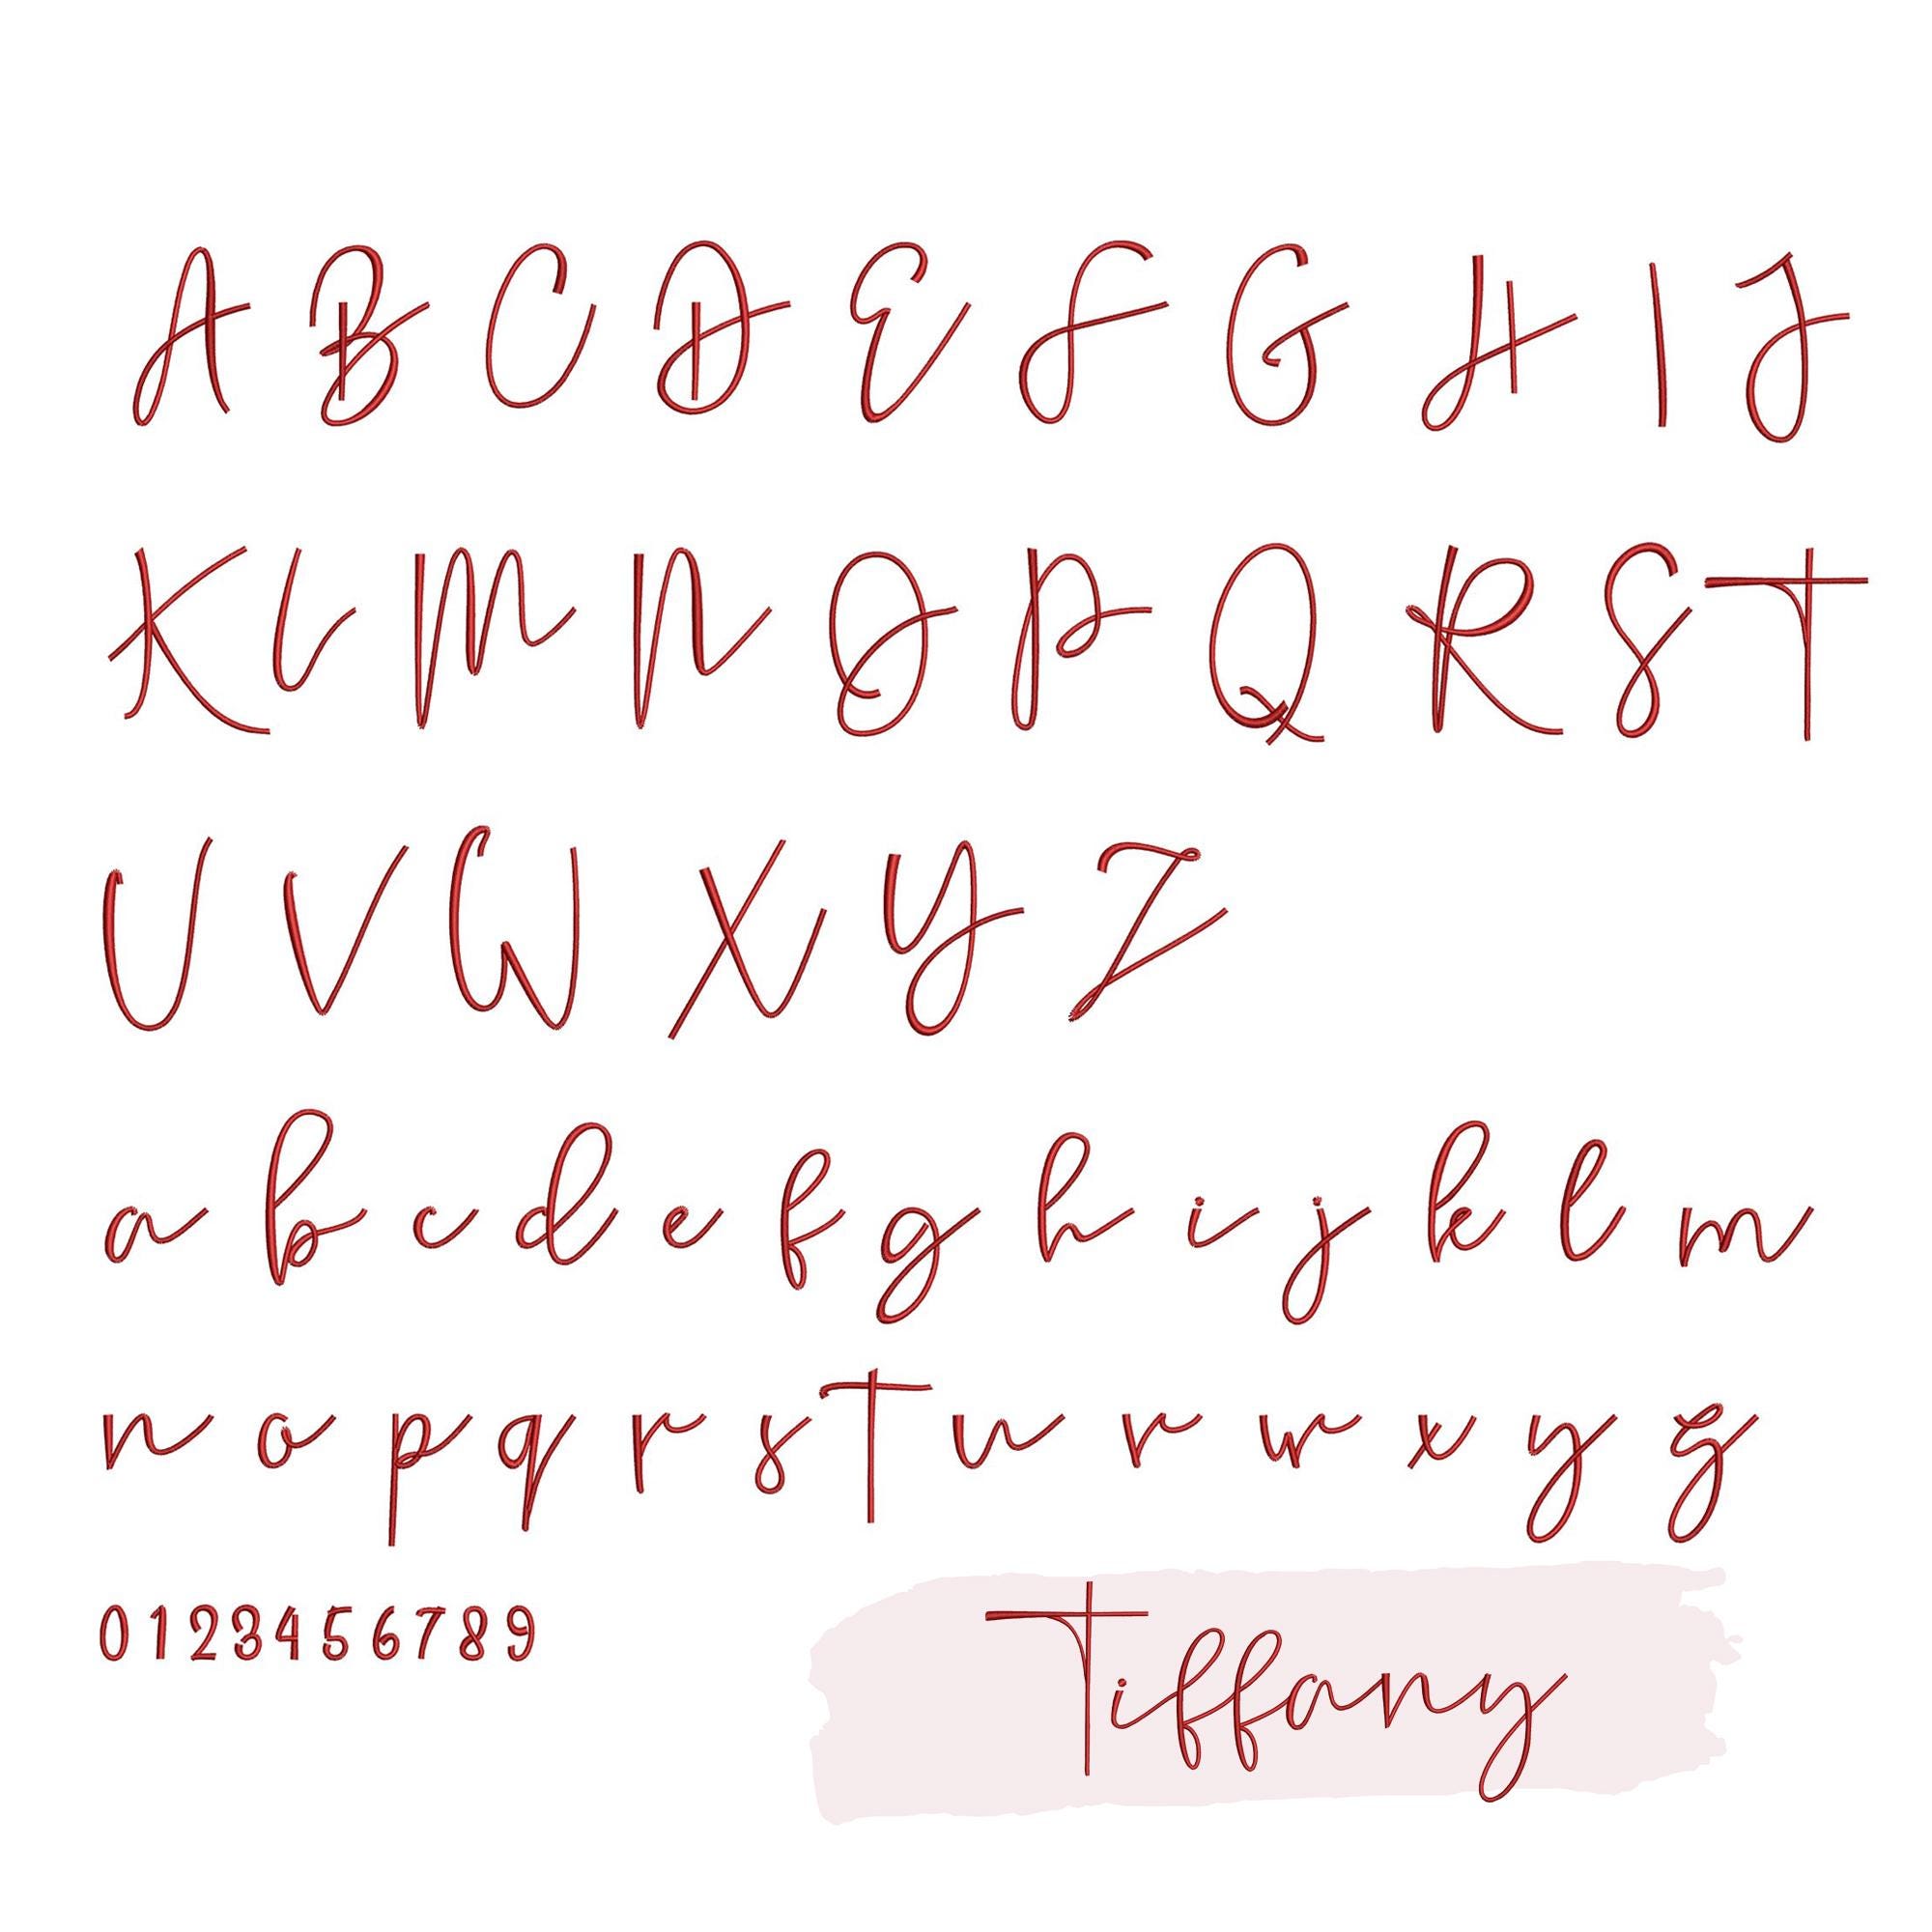 A B C D E F G H I J
K L M N O P Q R S T
U V W X Y Z
a b c d e f g h i j k l m
n o p q r s T u v w x y z
0 1 2 3 4 5 6 7 8 9
Tiffany